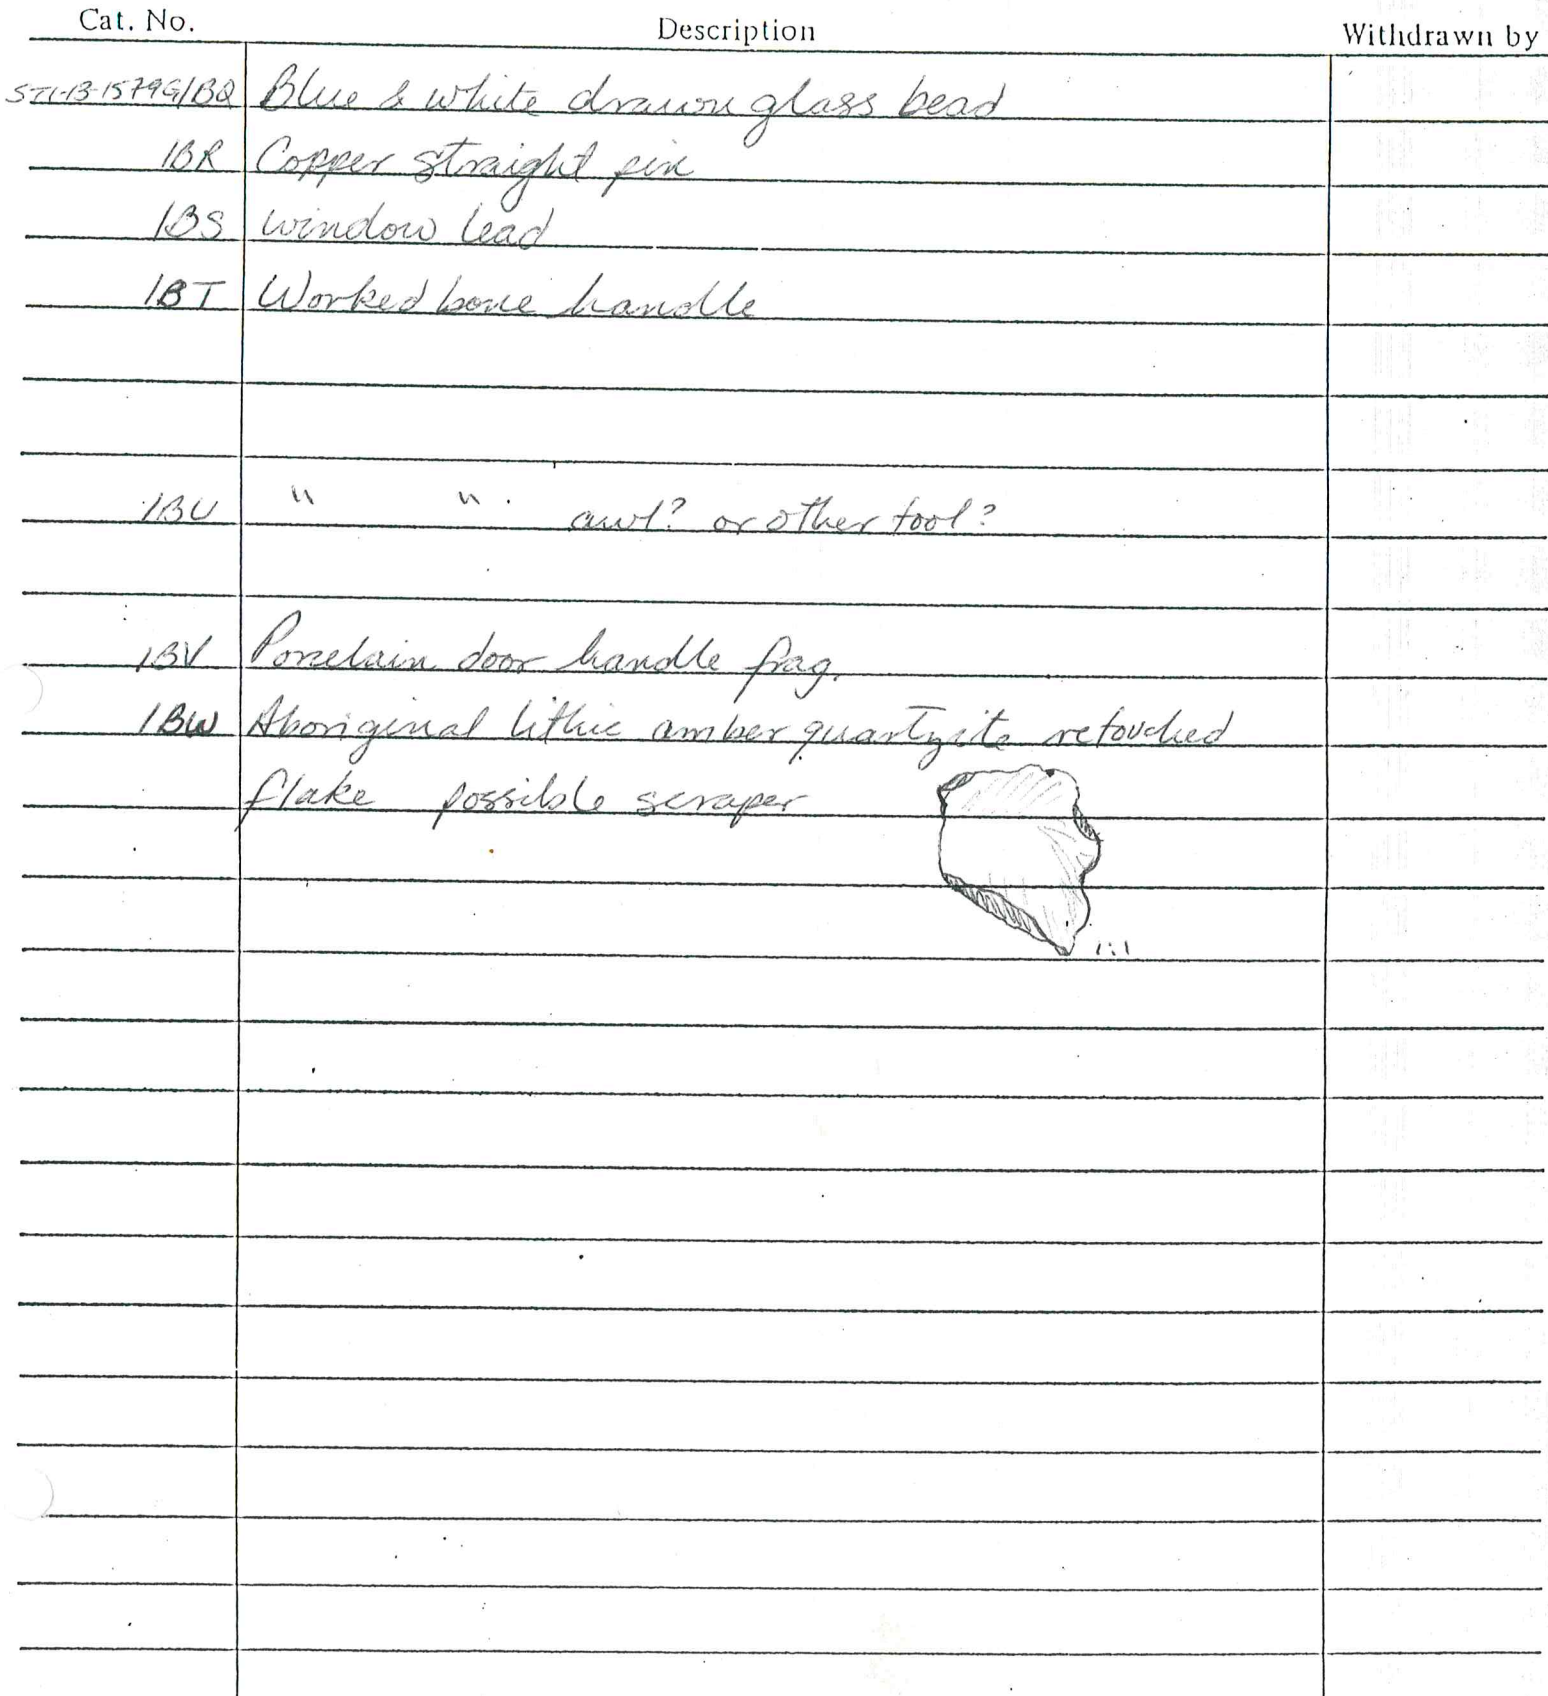 Cat. No. Description Withdrawn by
ST1-13-1579G/BQ Blue & white drawn glass bead
1BR Copper straight pin
1BS window lead
1BT Worked bone handle
1BU " " awl? or other tool?
1BV Porcelain door handle frag.
1BW Aboriginal lithic amber quartzite retouched
flake possible scraper
1:1